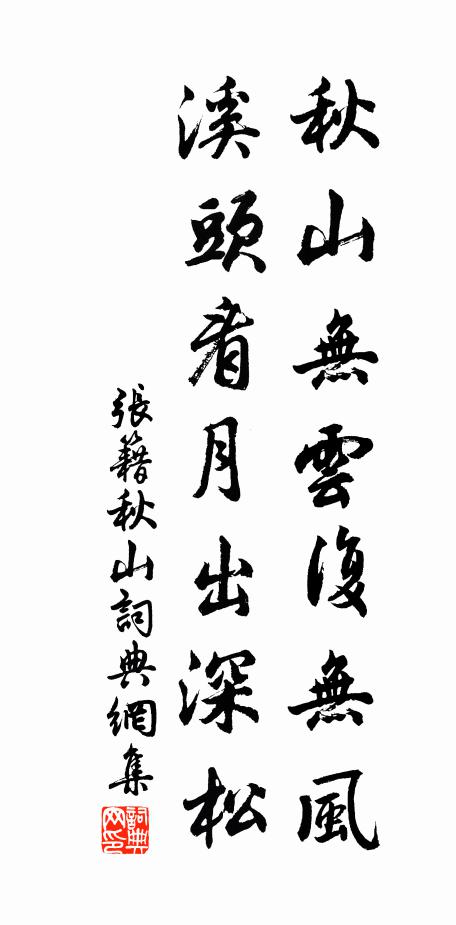 秋山無雲復無風
溪頭看月出深松
張籍秋山詞典網集
詞典网印